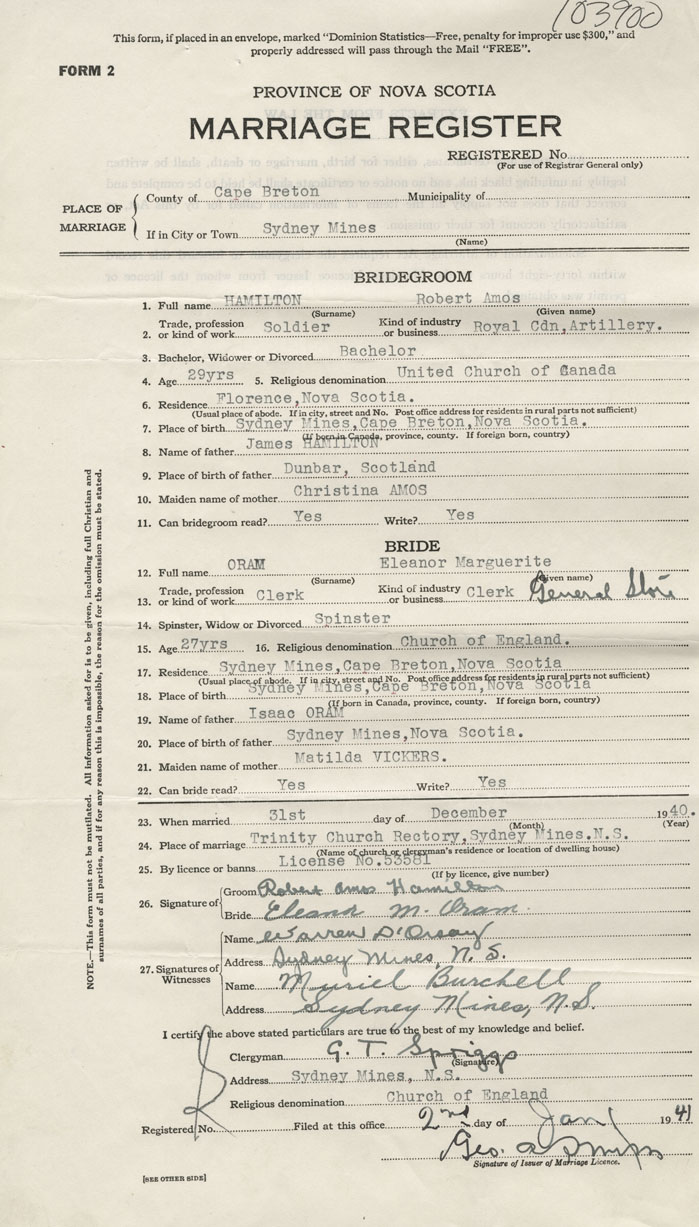 103900
This form, if placed in an envelope, marked "Dominion Statistics—Free, penalty for improper use $300," and
properly addressed will pass through the Mail "FREE".
FORM 2
PROVINCE OF NOVA SCOTIA
MARRIAGE REGISTER
REGISTERED No.
(For use of Registrar General only)
PLACE OF MARRIAGE
County of Cape Breton Municipality of
If in City or Town Sydney Mines
(Name)
BRIDEGROOM
1. Full name HAMILTON Robert Amos
(Surname) (Given name)
2. Trade, profession or kind of work Soldier Kind of industry or business Royal Cdn,Artillery.
3. Bachelor, Widower or Divorced Bachelor
4. Age 29yrs 5. Religious denomination United Church of Canada
6. Residence Florence,Nova Scotia.
(Usual place of abode. If in city, street and No. Post office address for residents in rural parts not sufficient)
7. Place of birth Sydney Mines,Cape Breton,Nova Scotia.
(If born in Canada, province, county. If foreign born, country)
8. Name of father James HAMILTON
9. Place of birth of father Dunbar, Scotland
10. Maiden name of mother Christina AMOS
11. Can bridegroom read? Yes Write? Yes
BRIDE
12. Full name ORAM Eleanor Marguerite
(Surname) (Given name)
13. Trade, profession or kind of work Clerk Kind of industry or business Clerk General Store
14. Spinster, Widow or Divorced Spinster
15. Age 27yrs 16. Religious denomination Church of England.
17. Residence Sydney Mines,Cape Breton,Nova Scotia
(Usual place of abode. If in city, street and No. Post office address for residents in rural parts not sufficient)
18. Place of birth Sydney Mines,Cape Breton,Nova Scotia
(If born in Canada, province, county. If foreign born, country)
19. Name of father Isaac ORAM
20. Place of birth of father Sydney Mines,Nova Scotia.
21. Maiden name of mother Matilda VICKERS.
22. Can bride read? Yes Write? Yes
23. When married 31st day of December 1940.
(Month) (Year)
24. Place of marriage Trinity Church Rectory,Sydney Mines.N.S.
(Name of church or clergyman's residence or location of dwelling house)
25. By licence or banns License No.53581
(If by licence, give number)
26. Signature of
Groom Robert Amos Hamilton
Bride Eleanor M. Oram.
27. Signatures of Witnesses
Name Warren D'Orsay
Address Sydney Mines, N. S.
Name Muriel Burchell
Address Sydney Mines, N.S.
I certify the above stated particulars are true to the best of my knowledge and belief.
Clergyman G. T. Spriggs
(Signature)
Address Sydney Mines, N.S.
Religious denomination Church of England
Registered No. Filed at this office 2nd day of Jan 1941
Geo.
Signature of Issuer of Marriage Licence.
[SEE OTHER SIDE]
NOTE.—This form must not be mutilated. All information asked for is to be given, including full Christian and
surnames of all parties, and if for any reason this is impossible, the reason for the omission must be stated.